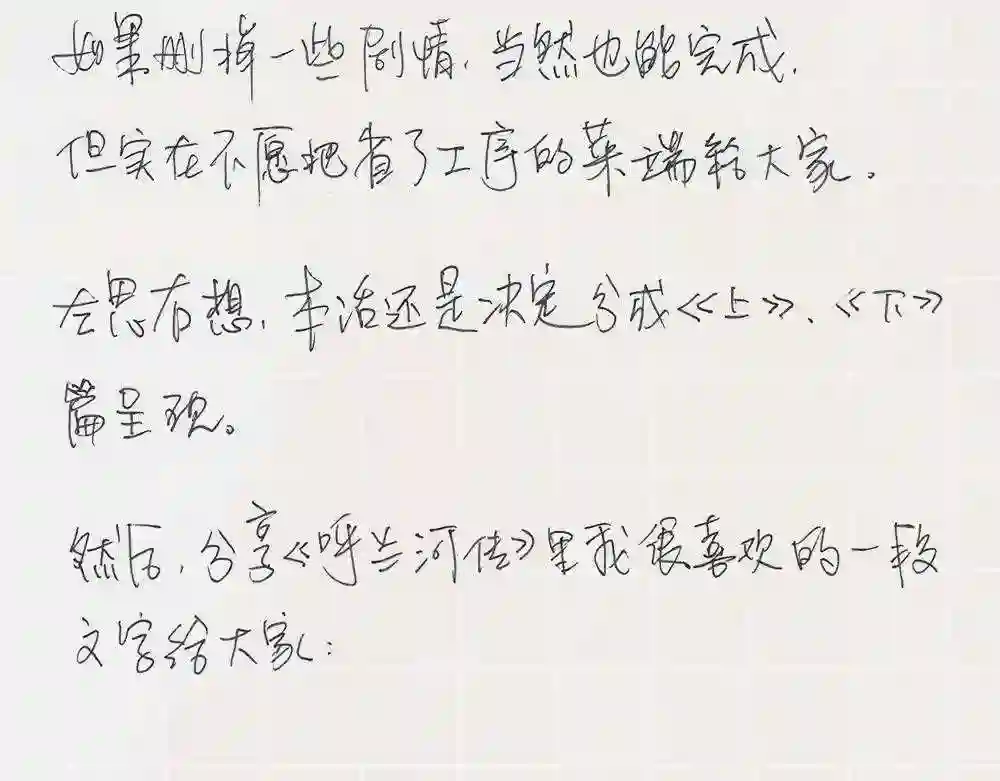 如果删掉一些剧情,当然也能完成,
但实在不愿把省了工序的菜端给大家。
左思右想,本话还是决定分成《上》、《下》
篇呈现。
然后,分享《呼兰河传》里我很喜欢的一段
文字给大家: